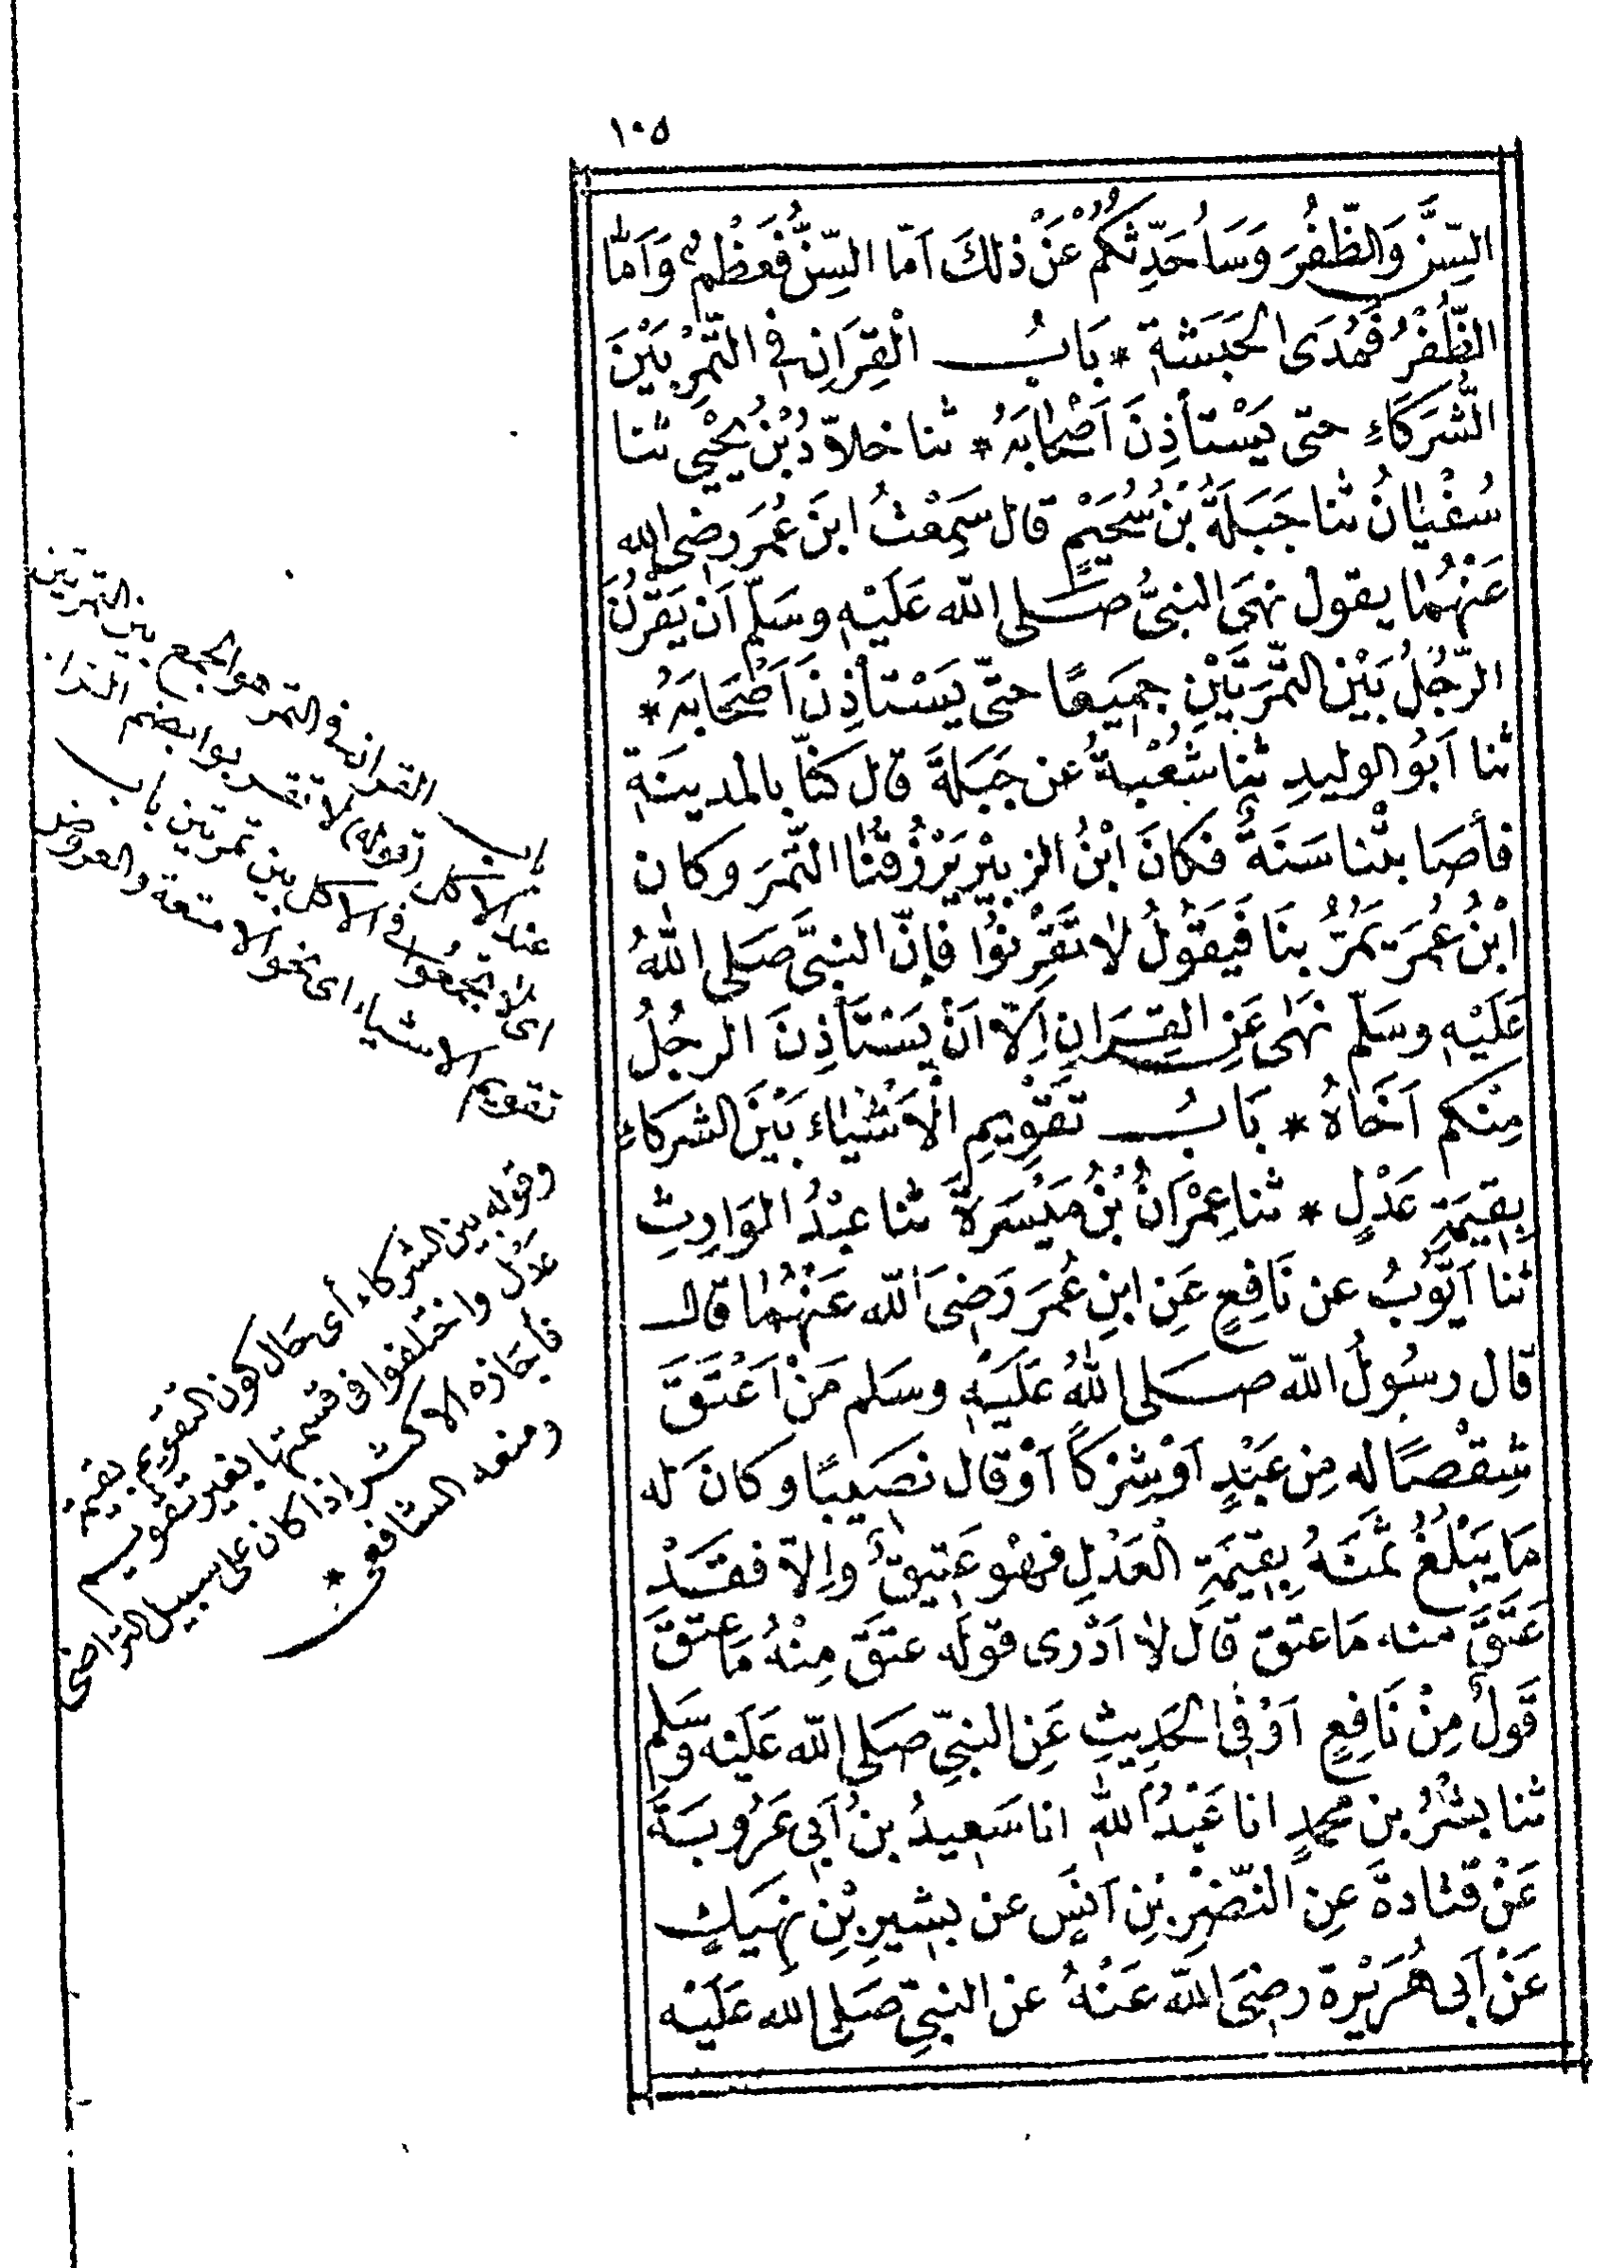 ١٠٥
السِّنَّ وَالظُّفُرَ وَسَاُحَدِّثُكُمْ عَنْ ذلكَ اَمّا السِّنُّ فَعَظْمٌ وَاَمّا
الظُّفُرُ فَمُدَى الحَبَشَةِ * بَابُ القِرَانِ فى التَّمْرِ بَيْنَ
الشُّرَكَاءِ حتى يَسْتأذِنَ اَصْحَابَهُ * ثنا خلاّدُ بْنُ يَحْيى ثنا
سُفْيَانُ ثنا جَبَلَةُ بْنُ سُحَيْمٍ قال سَمِعْتُ ابنَ عُمَرَ رضى الله
عَنْهُمَا يقول نهَى النبىُّ صلى الله عَلَيْهِ وسَلّم اَن يَقْرُنَ
الرّجُلُ بَيْنَ التَّمْرَتَيْنِ جمِيَعًا حتّى يَسْتأذِنَ اَصْحَابَهُ *
ثنا اَبُو الوليدِ ثنا شُعْبةُ عن جَبَلَةَ قال كنّا بالمدينَةِ
فأصَابتْنا سَنَةٌ فكانَ ابْنُ الزبيْرِ يَرْزُقُنَا التَّمْرَ وكان
ابْنُ عُمَرَ يَمُرُّ بنَا فَيَقُولُ لاَ تَقْرِنُوُا فاِنّ النبىَّ صَلى اللهُ
عَلَيْهِ وسَلّم نَهَى عَنِ القِرَانِ اِلاّ اَنْ يَسْتَأذِنَ الرجُلُ
مِنْكم اَخَاهُ * بَابُ تَقْوِيمِ الْاَشْيَاءِ بَيْنَ الشركاءِ
بِقِيمَةِ عَدْلٍ * ثنا عِمْرَانُ بْنُ مَيْسَرَةَ ثنا عبْدُ الوَارِثِ
ثنا اَيّوُبُ عن نَافِعٍ عَنِ ابنِ عُمَرَ رَضِىَ الله عَنْهُمَا قال
قال رسُولُ الله صلى اللهُ عَلَيْهِ وسَلم مَنْ اَعْتَقَ
شِقْصًا له مِن عَبْدٍ اَوْ شِرْكاً اَوْ قال نصَيبًا وكانَ له
مَا يَبْلُغُ ثَمَنَهُ بِقِيمَةِ العَدْلِ فهْو عَتِيقٌ واِلاّ فقَدْ
عَتَقَ منه مَا عتق قالَ لاَ اَدْرى قوْلَه عتَقَ مِنْهُ مَا عتقَ
قَولٌ مِنْ نَافِعٍ اَوْ فى الحَدِيثِ عَنِ النبىِّ صَلى الله عَلَيْه وَسَلم
ثنا بشْرُ بن محمدٍ انا عَبْدُ اللهِ انا سَعِيدُ بنُ اَبى عَرُوبَةَ
عَنْ قتادةَ عنِ النّضْرِ بْنِ اَنَسٍ عن بشيرِ بْنِ نهَيكٍ
عَنْ اَبى هُرَيْرة رضِىَ الله عَنْهُ عن النبىِّ صَلى الله عَلَيْه
باب القران فى التمر هو الجمع بين التمرتين
عند الاكل (قوله) لا تقرنوا بضم الراء
اى لا تجمعُوا فى الاكل بين تمرتين باب
تقويم الاشياء اى نحو الامتعة والعروض
وقوله بين الشركاء أى حَال كون التقويم بقيمة
عَدْل واختلفوا فى قسمتها بغير تقويم
فأجَازه الاكثر اذا كان على سبيل التراضى
ومنعه الشافعى *